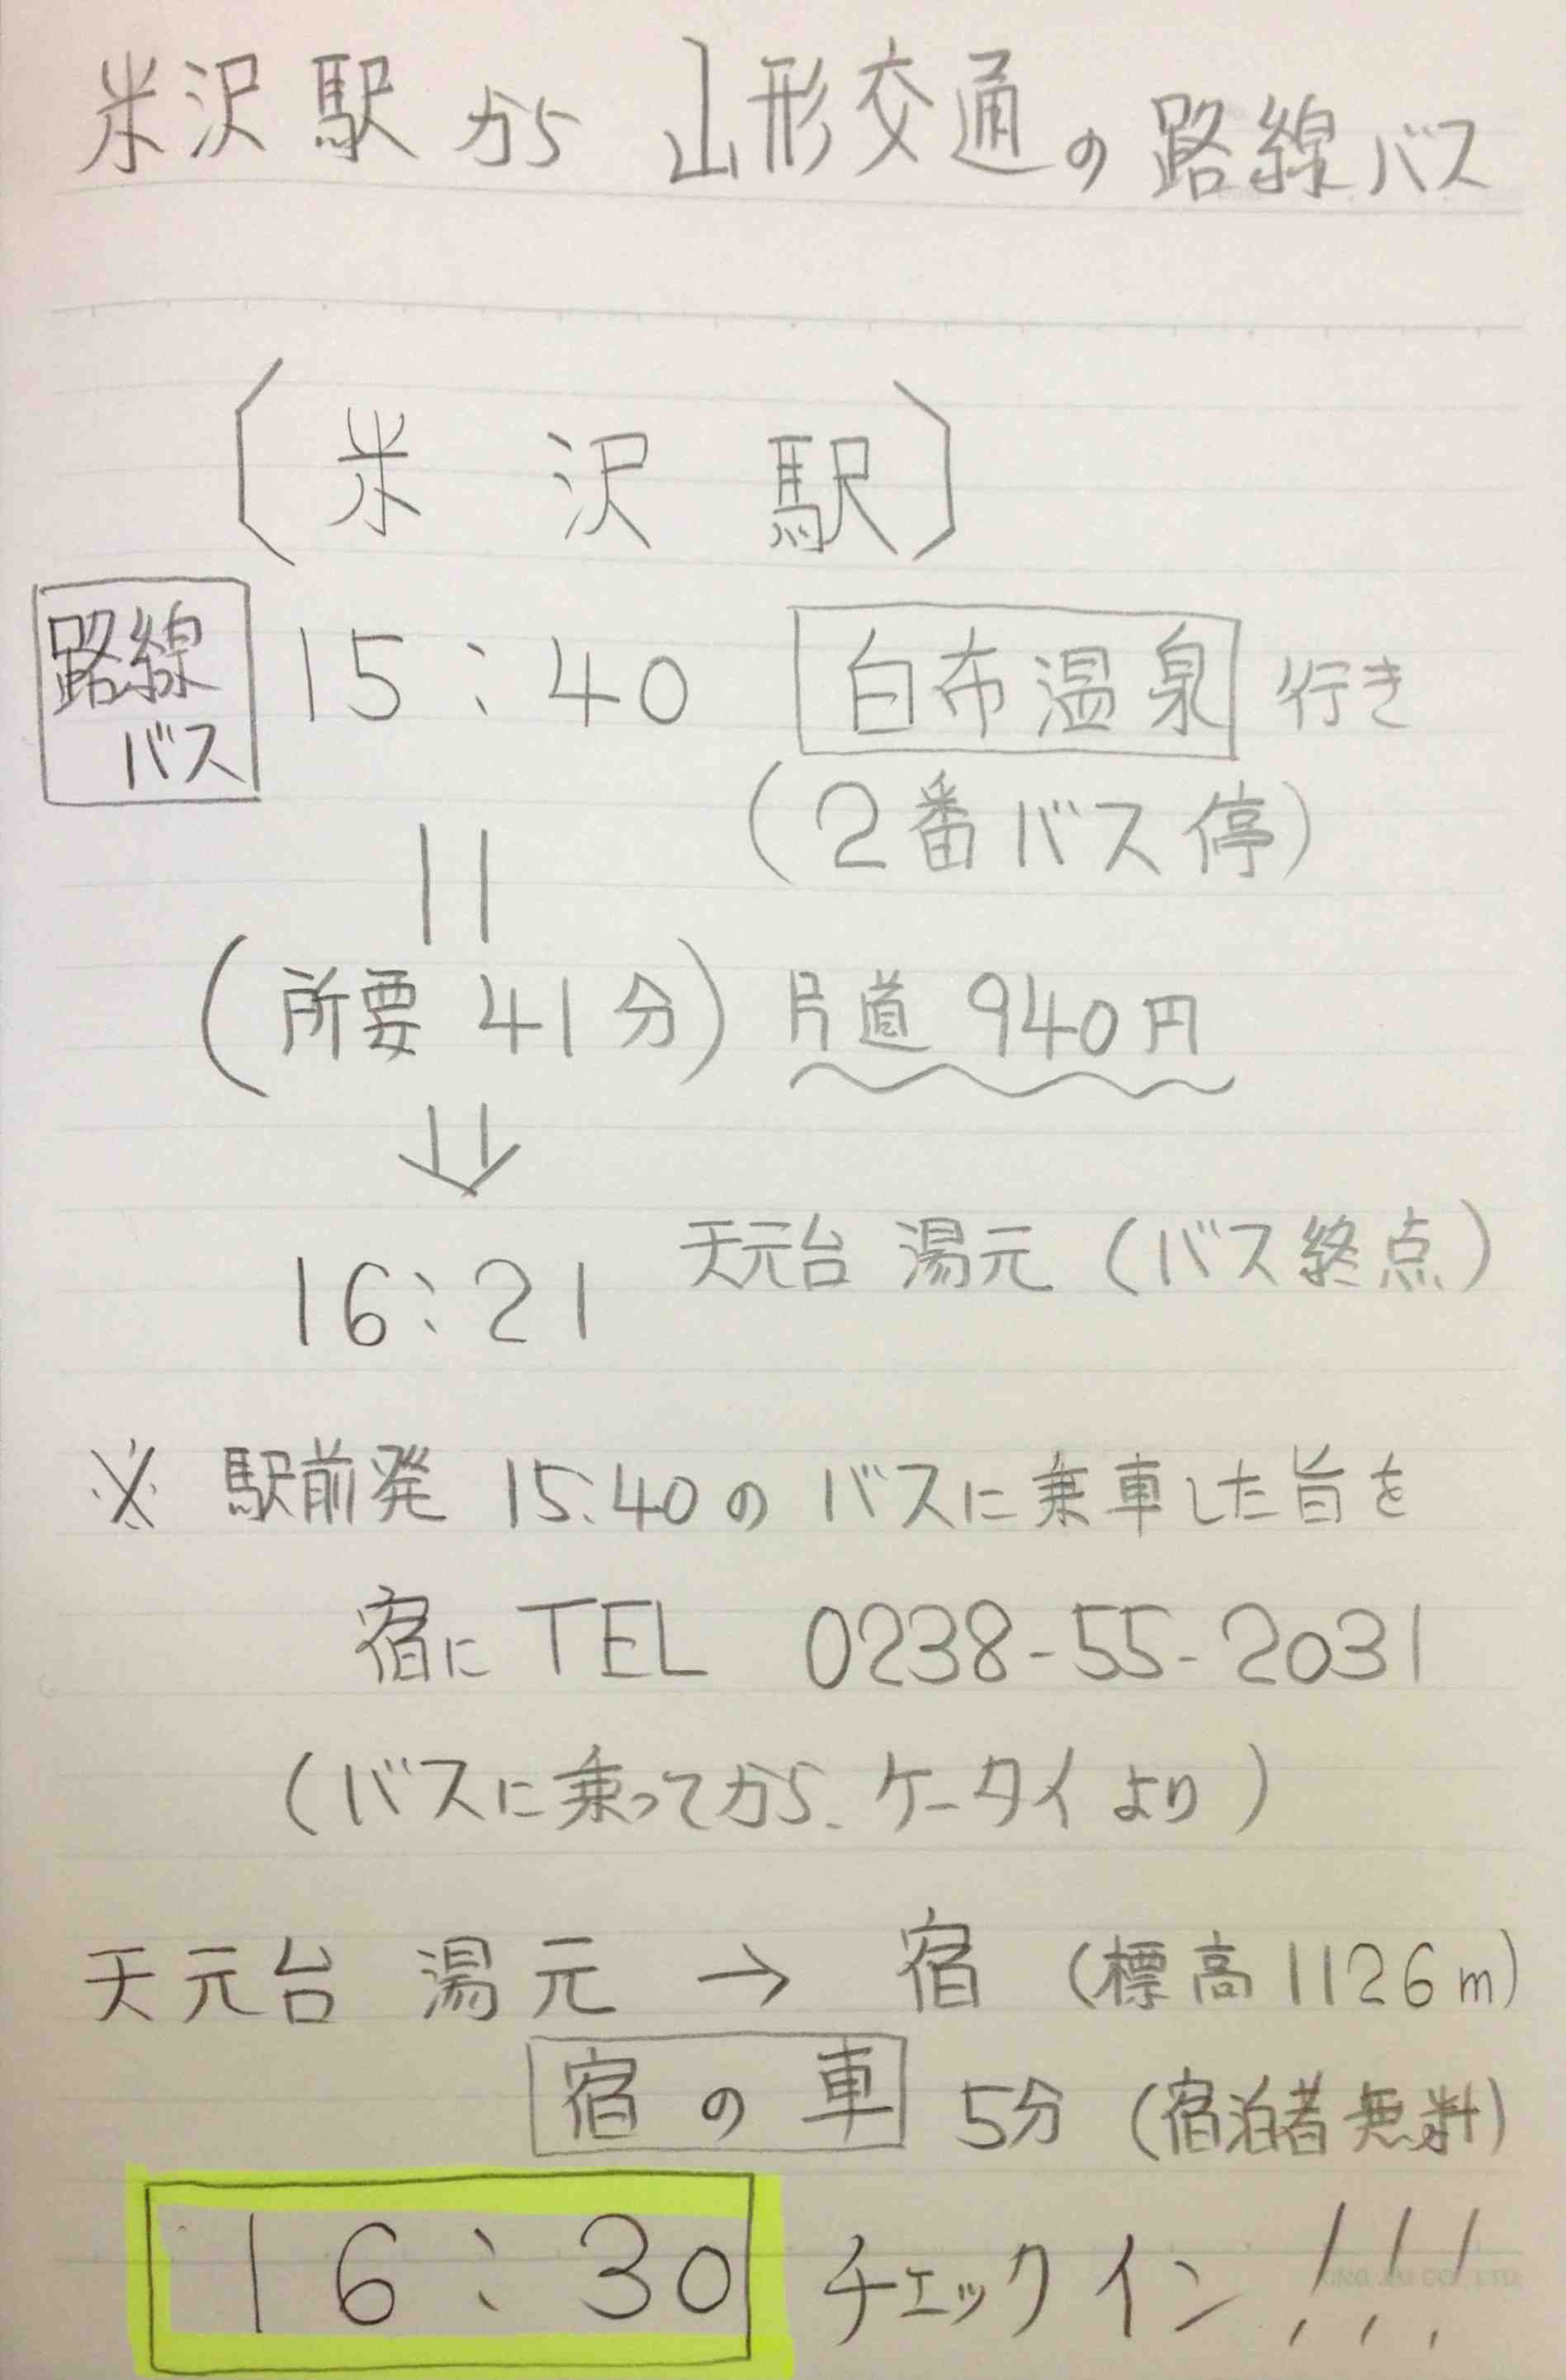 米沢駅から 山形交通の路線バス
〔米沢駅〕
路線バス 15:40 白布温泉 行き
(2番バス停)
(所要 41分) 片道 940円
16:21 天元台 湯元 (バス終点)
※ 駅前発 15:40の バスに乗車した旨を
宿に TEL 0238-55-2031
(バスに乗ってから、ケータイより)
天元台 湯元 → 宿 (標高1126m)
宿の車 5分 (宿泊者無料)
16:30 チェックイン!!!